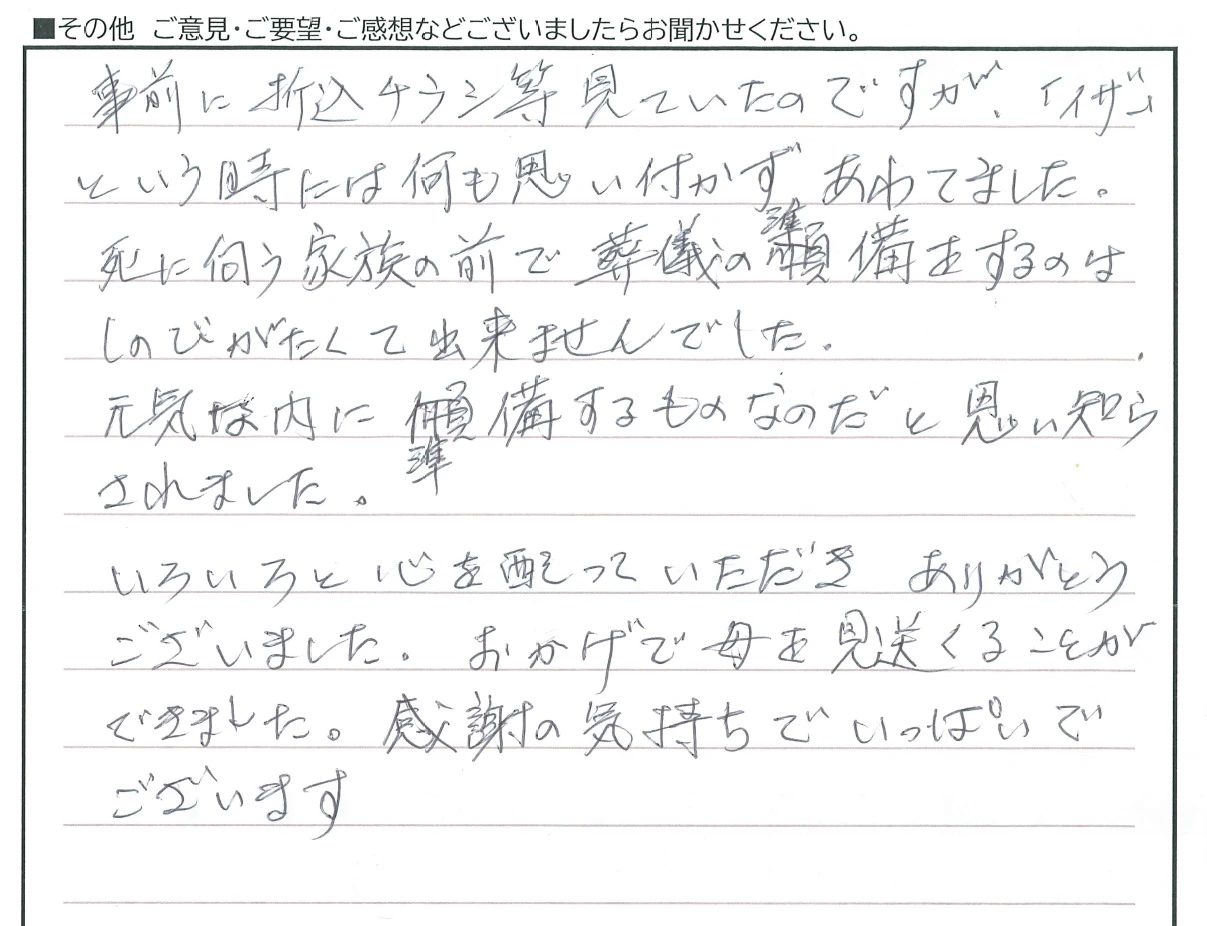 ■その他 ご意見・ご要望・ご感想などございましたらお聞かせください。
事前に折込チラシ等見ていたのですが、「イザ」
という時には何も思い付かずあわてました。
死に向う家族の前で葬儀の準備をするのは
しのびがたくて出来ませんでした。
元気な内に準備するものなのだと思い知ら
されました。
いろいろと心を配っていただき ありがとう
ございました。おかげで母を見送くることが
できました。感謝の気持ちでいっぱいで
ございます